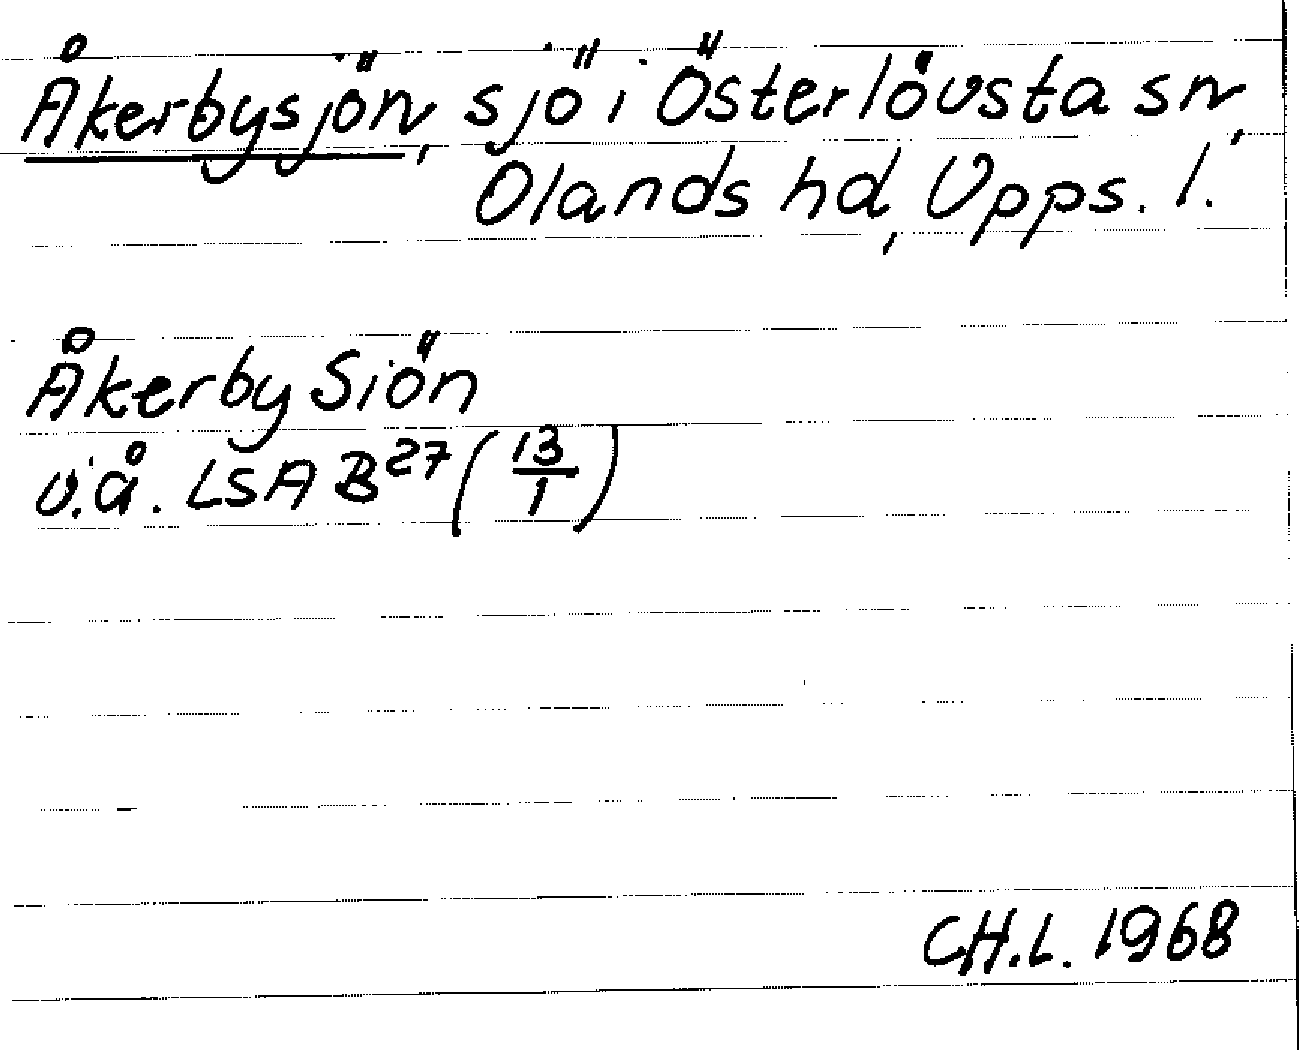 Åkerbysjön, sjö i Österlövsta sn,
Olands hd, Upps. l.
Åkerby Siön
u.å. LSA B27 (13/1)
CH.L. 1968